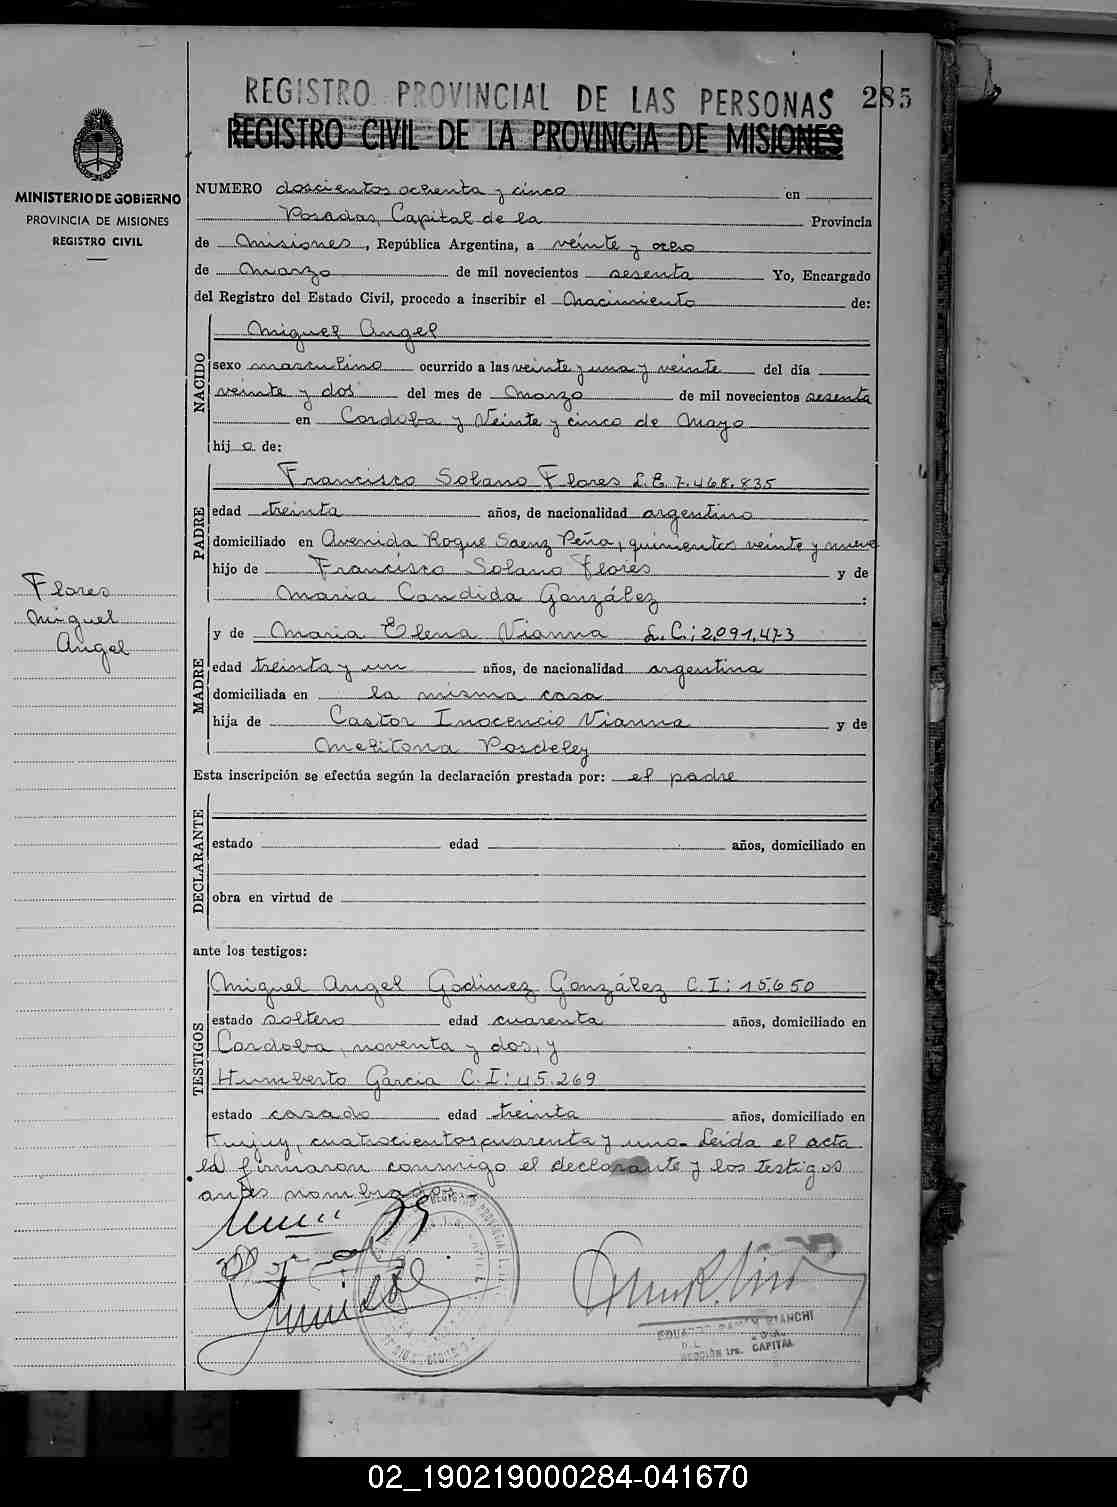 REGISTRO PROVINCIAL DE LAS PERSONAS 285
REGISTRO CIVIL DE LA PROVINCIA DE MISIONES
MINISTERIO DE GOBIERNO
PROVINCIA DE MISIONES
REGISTRO CIVIL
Flores
Miguel
Angel
NUMERO doscientos ochenta y cinco en
Posadas, Capital de la Provincia
de Misiones, República Argentina, a veinte y ocho
de Marzo de mil novecientos sesenta Yo, Encargado
del Registro del Estado Civil, procedo a inscribir el Nacimiento de:
NACIDO
Miguel Angel
sexo masculino ocurrido a las veinte y una y veinte del día
veinte y dos del mes de Marzo de mil novecientos sesenta
en Cordoba y Veinte y cinco de Mayo
hij o de:
PADRE
Francisco Solano Flores L.E. 7.468.835
edad treinta años, de nacionalidad argentino
domiciliado en Avenida Roque Saenz Peña, quinientos veinte y nueve
hijo de Francisco Solano Flores y de
Maria Candida González :
MADRE
y de Maria Elena Vianna L.C.; 2,091,473
edad treinta y un años, de nacionalidad argentina
domiciliada en la misma casa
hija de Castor Inocencio Vianna y de
Melitona Posdeley
Esta inscripción se efectúa según la declaración prestada por: el padre
DECLARANTE
estado edad años, domiciliado en
obra en virtud de
ante los testigos:
TESTIGOS
Miguel Angel Godinez González C.I: 15.650
estado soltero edad cuarenta años, domiciliado en
Cordoba, noventa y dos, y
Humberto Garcia C.I: 45.269
estado casado edad treinta años, domiciliado en
Jujuy, cuatrocientos cuarenta y uno- Leida el acta
la firmaron conmigo el declarante y los testigos
antes nombrados-
EDUARDO RAMON BIANCHI
SECCIÓN 1ra. CAPITAL
02_190219000284-041670